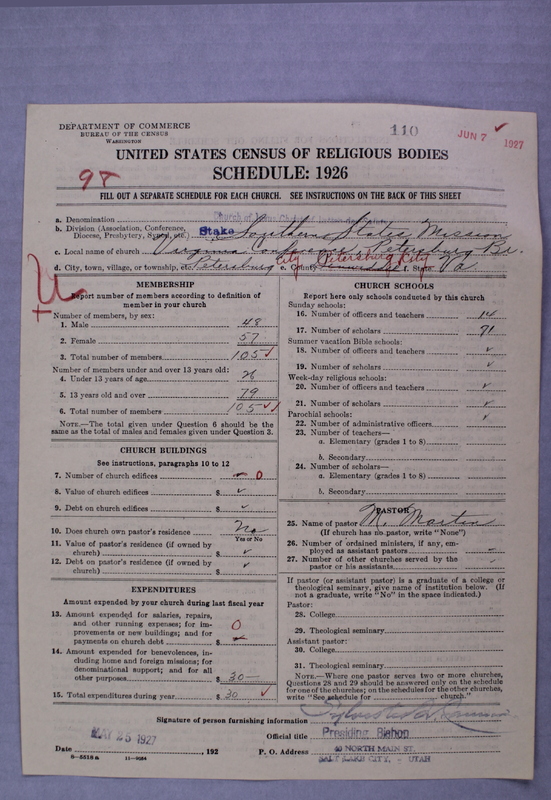 DEPARTMENT OF COMMERCE
BUREAU OF THE CENSUS
WASHINGTON
110
JUN 7 1927
UNITED STATES CENSUS OF RELIGIOUS BODIES
SCHEDULE: 1926
FILL OUT A SEPARATE SCHEDULE FOR EACH CHURCH. SEE INSTRUCTIONS ON THE BACK OF THIS SHEET
a. Denomination
b. Division (Association, Conference, Diocese, Presbytery, Synod, etc.) Stake Southern States Mission
c. Local name of church Virginia Conference Petersburg Br.
d. City, town, village, or township, etc. Petersburg City e. County Petersburg City f. State Va
MEMBERSHIP
Report number of members according to definition of
member in your church
Number of members, by sex:
1. Male 48
2. Female 57
3. Total number of members 105 ✓
Number of members under and over 13 years old:
4. Under 13 years of age 26
5. 13 years old and over 79
6. Total number of members 105 ✓
NOTE.—The total given under Question 6 should be
same as the total of males and females given under Question 3.
CHURCH BUILDINGS
See instructions, paragraphs 10 to 12
7. Number of church edifices 0
8. Value of church edifices $ ✓
9. Debt on church edifices $ ✓
10. Does church own pastor's residence No
Yes or No
11. Value of pastor's residence (if owned by
church) $ ✓
12. Debt on pastor's residence (if owned by
church) $ ✓
EXPENDITURES
Amount expended by your church during last fiscal year
13. Amount expended for salaries, repairs,
and other running expenses; for im-
provements or new buildings; and for
payments on church debt $ 0
14. Amount expended for benevolences, in-
cluding home and foreign missions; for
denominational support; and for all
other purposes $ 30—
15. Total expenditures during year $ 30 ✓
CHURCH SCHOOLS
Report here only schools conducted by this church
Sunday schools:
16. Number of officers and teachers 14
17. Number of scholars 91
Summer vacation Bible schools:
18. Number of officers and teachers ✓
19. Number of scholars ✓
Week-day religious schools:
20. Number of officers and teachers ✓
21. Number of scholars ✓
Parochial schools:
22. Number of administrative officers ✓
23. Number of teachers—
a. Elementary (grades 1 to 8)
b. Secondary
24. Number of scholars—
a. Elementary (grades 1 to 8)
b. Secondary
PASTOR
25. Name of pastor M. Martin
(If church has no pastor, write "None")
26. Number of ordained ministers, if any, em-
ployed as assistant pastors
27. Number of other churches served by the
pastor or his assistants
If pastor (or assistant pastor) is a graduate of a college or
theological seminary, give name of institution below. (If
not a graduate, write "No" in the space indicated.)
Pastor:
28. College
29. Theological seminary
Assistant pastor:
30. College
31. Theological seminary
NOTE.—Where one pastor serves two or more churches,
Questions 28 and 29 should be answered only on the schedule
for one of the churches; on the schedules for the other churches,
write "See schedule for church."
Signature of person furnishing information
Official title Presiding Bishop
Date MAY 25 1927, 192 P. O. Address 40 NORTH MAIN ST.
SALT LAKE CITY, - UTAH
8—5518a 11—9034